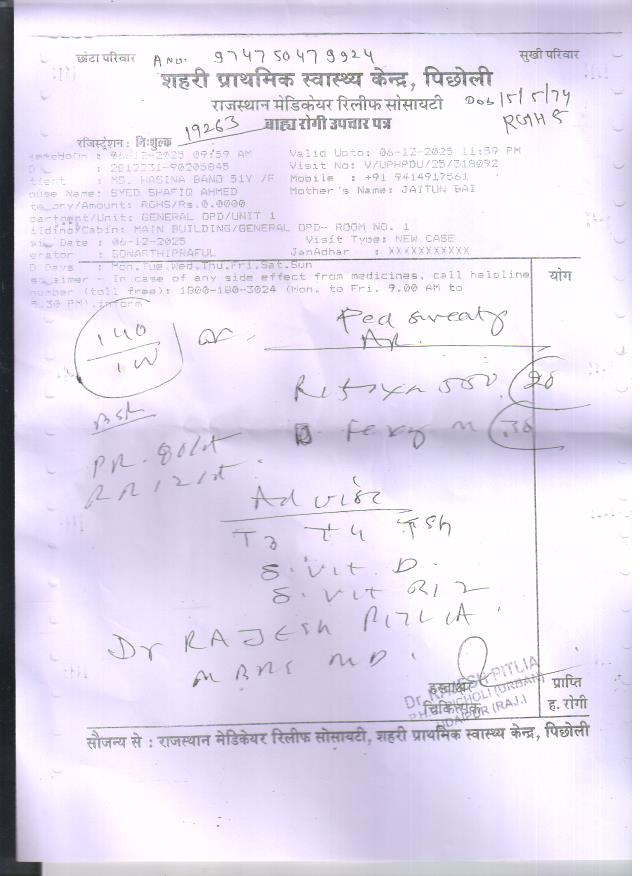 छोटा परिवार A NO. 974750479924 सुखी परिवार
शहरी प्राथमिक स्वास्थ्य केन्द्र, पिछोली
राजस्थान मेडिकेयर रिलीफ सोसायटी DOB 15/5/74
19263 बाह्य रोगी उपचार पत्र RGHS
रजिस्ट्रेशन : निःशुल्क
: 06-12-2025 09:59 AM Valid Upto: 06-12-2025 11:59 PM
: 2012231-90205845 Visit No: V/UPHPDU/25/318092
: MS. HASINA BANO 51Y /F Mobile : +91 9414917561
ouse Name: SYED SHAFIQ AHMED Mother's Name: JAITUN BAI
ory/Amount: RGHS/Rs.0.0000
partment/Unit: GENERAL OPD/UNIT 1
ilding/Cabin: MAIN BUILDING/GENERAL OPD- ROOM NO. 1
Date : 06-12-2025 Visit Type: NEW CASE
erator : SONARTHIPRAFUL JanAdhar : XXXXXXXXXXX
D Days : Mon,Tue,Wed,Thu,Fri,Sat,Sun
aimer - In case of any side effect from medicines, call helpline योग
number (toll free): 1800-180-3024 (Mon. to Fri. 9.00 AM to
5.30 PM).inform
140
AR
550 20
30
PR. 80/t
RR 12/t
Advise
T3 T4 TSH
S. Vit D.
S. Vit B12
Dr RAJESH PITLIA
MBBS MD.
हस्ताक्षर
चिकित्सक
Dr. RAJESH PITLIA
PICHOLI (URBAN)
UDAIPUR (RAJ.)
प्राप्ति
ह. रोगी
सौजन्य से : राजस्थान मेडिकेयर रिलीफ सोसायटी, शहरी प्राथमिक स्वास्थ्य केन्द्र, पिछोली